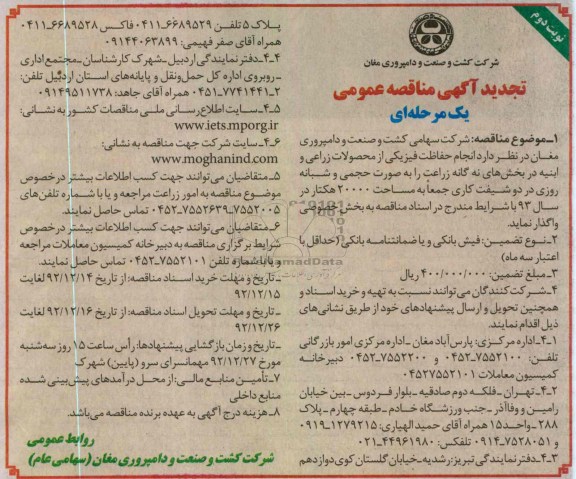 نوبت دوم
شرکت کشت و صنعت و دامپروری مغان
تجدید آگهی مناقصه عمومی
یک مرحله‌ای
۱ـ موضوع مناقصه: شرکت سهامی کشت و صنعت و دامپروری
مغان در نظر دارد انجام حفاظت فیزیکی از محصولات زراعی و
ابنیه در بخش‌های نه گانه زراعت را به صورت حجمی و شبانه
روزی در دو شیفت کاری جمعاً به مساحت ۲۰۰۰۰ هکتار در
سال ۹۳ با شرایط مندرج در اسناد مناقصه به بخش خصوصی
واگذار نماید.
۲ـ نوع تضمین: فیش بانکی و یا ضمانتنامه بانکی (حداقل با
اعتبار سه ماه)
۳ـ مبلغ تضمین: ۴۰۰/۰۰۰/۰۰۰ ریال
۴ـ شرکت کنندگان می‌توانند نسبت به تهیه و خرید اسناد و
همچنین تحویل و ارسال پیشنهادهای خود از طریق نشانی‌های
ذیل اقدام نمایند.
۱ـ۴ـ اداره مرکزی: پارس آباد مغان ـ اداره مرکزی امور بازرگانی
تلفن: ۷۵۵۲۱۰۰ـ۰۴۵۲ و ۷۵۵۲۲۰۰ـ۰۴۵۲ دبیرخانه
کمیسیون معاملات ۰۴۵۲۷۵۵۲۱۰۱
۲ـ۴ـ تهران ـ فلکه دوم صادقیه ـ بلوار فردوس ـ بین خیابان
رامین و وفاآذر ـ جنب ورزشگاه خادم ـ طبقه چهارم ـ پلاک
۲۸۸ـ واحد ۱۵ همراه آقای حمید الهیاری: ۱۲۷۹۲۱۵ـ۰۹۱۹
و ۷۵۲۸۰۵۱ـ۰۹۱۴ تلفکس: ۴۴۹۶۱۹۸۰ـ۰۲۱
۳ـ۴ـ دفتر نمایندگی تبریز: رشدیه ـ خیابان گلستان کوی دوازدهم
پلاک ۵ تلفن ۶۶۸۹۵۲۹ـ۰۴۱۱ فاکس ۶۶۸۹۵۲۸ـ۰۴۱۱
همراه آقای صفر فهیمی: ۰۹۱۴۴۰۶۳۸۹۹
۴ـ۴ـ دفتر نمایندگی اردبیل ـ شهرک کارشناسان ـ مجتمع اداری
ـ روبروی اداره کل حمل‌ونقل و پایانه‌های استان اردبیل تلفن:
۷۷۴۱۴۴۱ـ۲ـ۰۴۵۱ همراه آقای جاهد: ۰۹۱۴۹۵۱۱۷۳۸
۵ـ۴ـ سایت اطلاع رسانی ملی مناقصات کشور به نشانی:
www.iets.mporg.ir
۶ـ۴ـ سایت شرکت جهت مناقصه به نشانی:
www.moghanind.com
۵ـ متقاضیان می‌توانند جهت کسب اطلاعات بیشتر در خصوص
موضوع مناقصه به امور زراعت مراجعه و یا با شماره تلفن‌های
۷۵۵۲۰۰۵ـ۷۵۵۲۶۳۹ـ۰۴۵۲ تماس حاصل نمایند.
۶ـ متقاضیان می‌توانند جهت کسب اطلاعات بیشتر در خصوص
شرایط برگزاری مناقصه به دبیرخانه کمیسیون معاملات مراجعه
و یا با شماره تلفن ۷۵۵۲۱۰۱ـ۰۴۵۲ تماس حاصل نمایند.
ـ تاریخ و مهلت خرید اسناد مناقصه: از تاریخ ۹۲/۱۲/۱۴ لغایت
۹۲/۱۲/۱۵
ـ تاریخ و مهلت تحویل اسناد مناقصه: از تاریخ ۹۲/۱۲/۱۶ لغایت
۹۲/۱۲/۲۶
ـ تاریخ و زمان بازگشایی پیشنهادها: رأس ساعت ۱۵ روز سه‌شنبه
مورخ ۹۲/۱۲/۲۷ مهمانسرای سرو (پایین) شهرک
۷ـ تأمین منابع مالی: از محل درآمدهای پیش‌بینی شده
منابع داخلی
۸ـ هزینه درج آگهی به عهده برنده مناقصه می‌باشد.
روابط عمومی
شرکت کشت و صنعت و دامپروری مغان (سهامی عام)